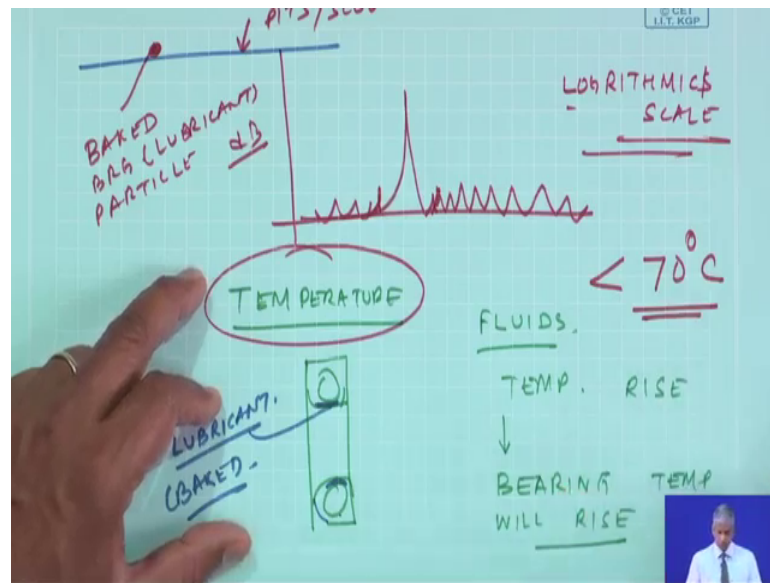 © CET
I.I.T. KGP
PITS/
BAKED
BRG (LUBRICANT)
PARTICLE
dB
LOGRITHMICS
SCALE
TEMPERATURE
< 70°C
FLUIDS.
TEMP. RISE
BEARING TEMP
WILL RISE
LUBRICANT.
(BAKED.